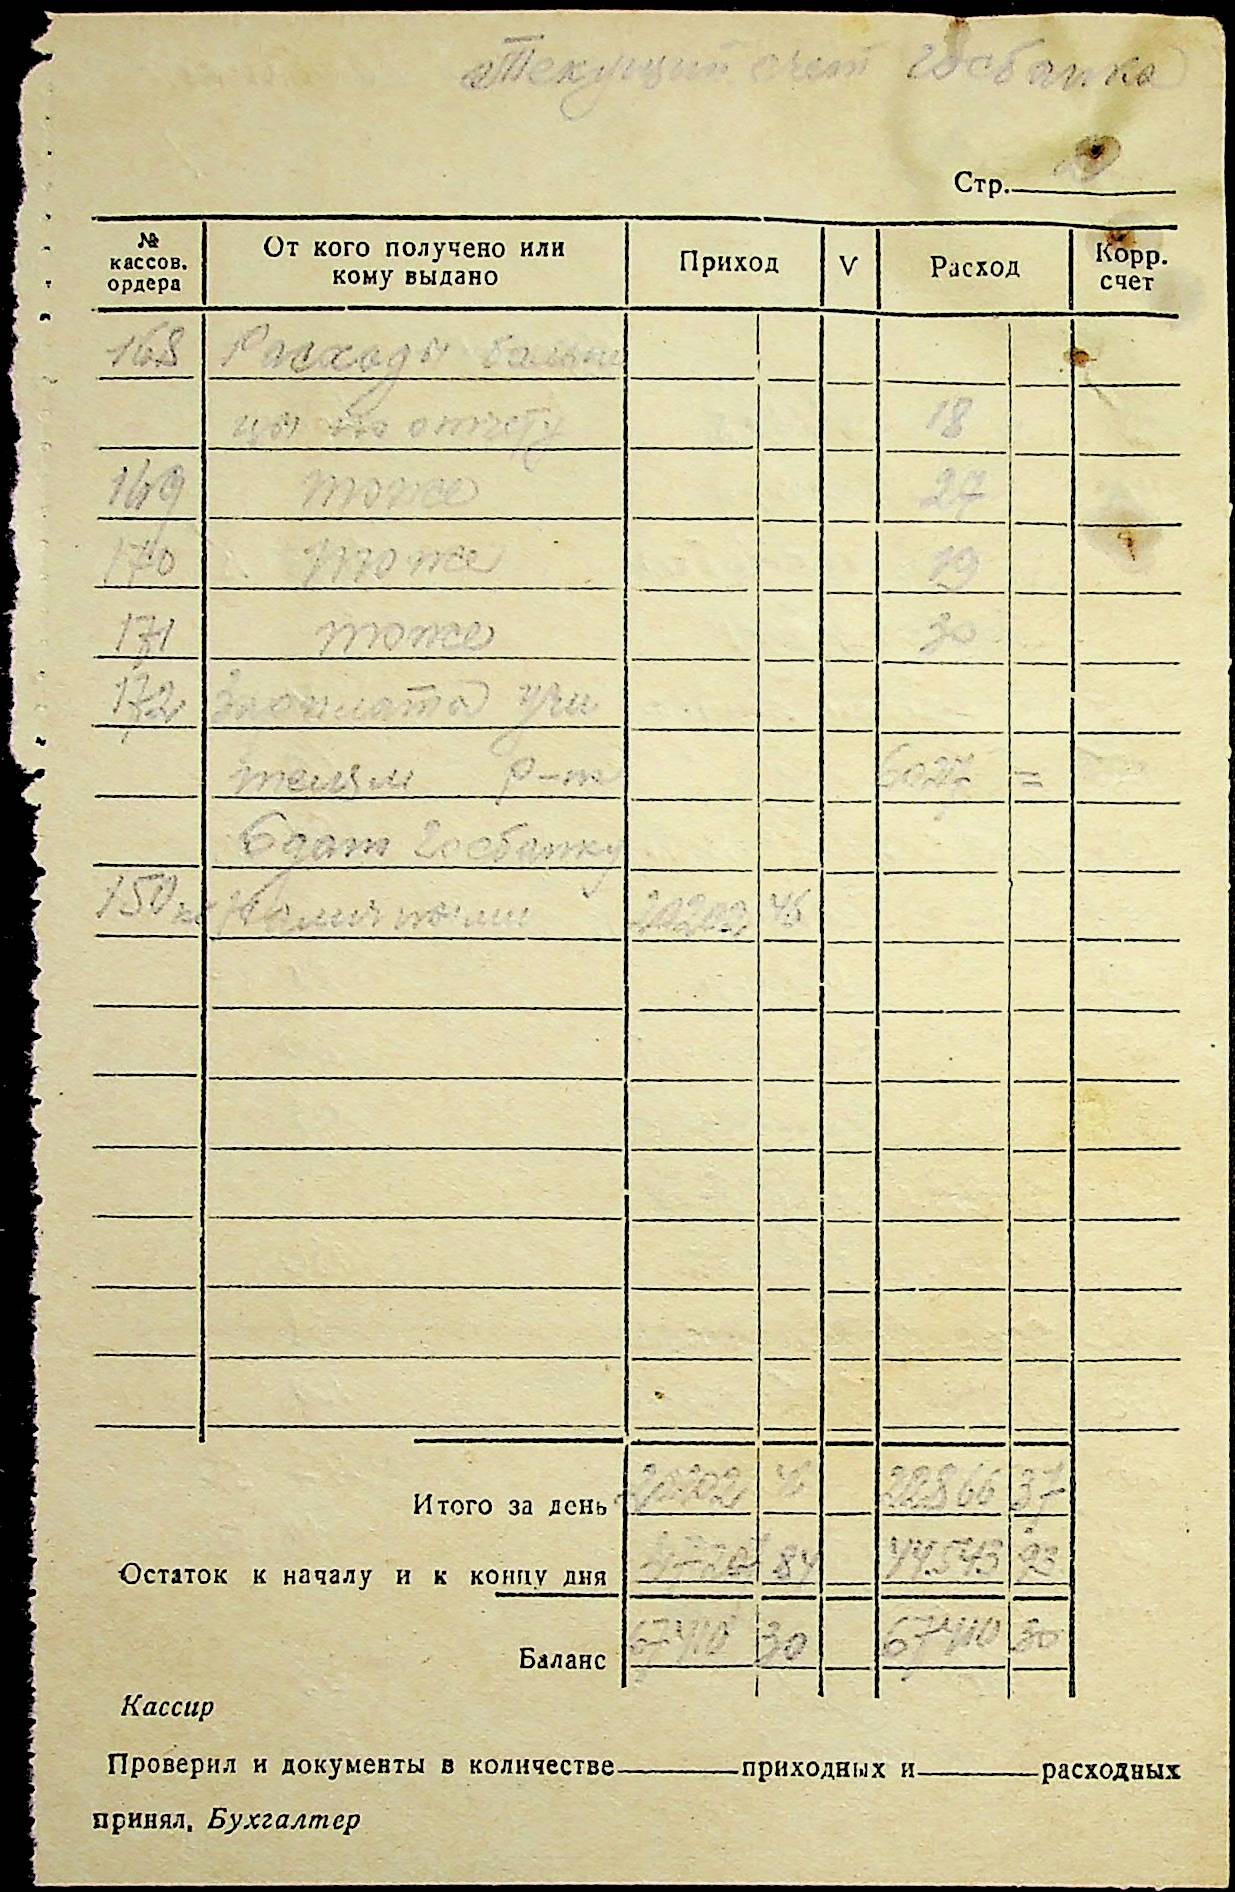 Текущий счет Госбанка
Стр. 2
№ кассов. ордера От кого получено или кому выдано Приход V Расход Корр. счет
168 Расходы больни
цы по отчету 18
169 тоже 27
170 тоже 19
171 тоже 30
172 Зарплата учи
телям р-т 6027 =
Сдат Госбанку
150 Наличными 20202 46
Итого за день 20202 46 22866 37
Остаток к началу и к концу дня 84 44543 93
Баланс 67410 30 67410 30
Кассир
Проверил и документы в количестве приходных и расходных
принял. Бухгалтер